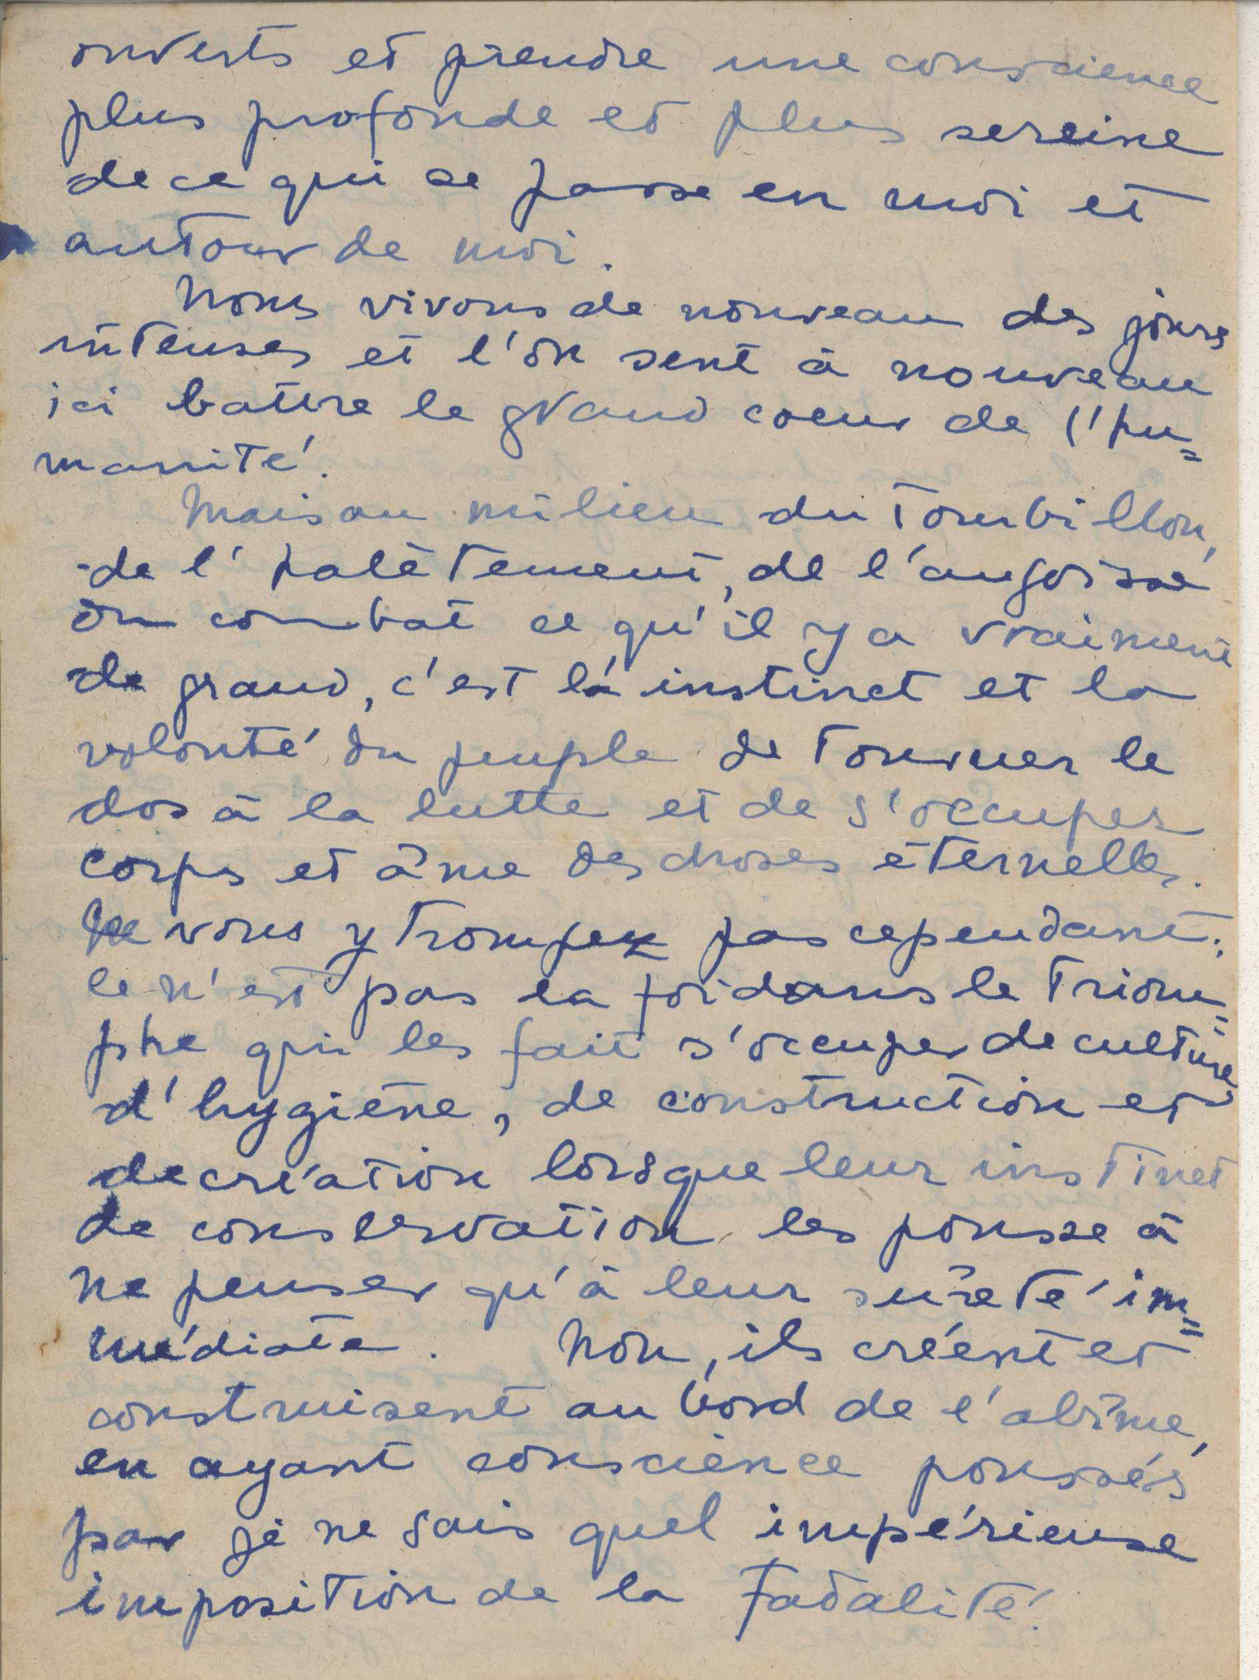 ouverts et prendre une conscience
plus profonde et plus sereine
de ce qui se passe en moi et
autour de moi.
Nous vivons de nouveau des jours
intenses et l'on sent à nouveau
ici battre le grand coeur de l'hu=
manité.
Mais au milieu du tourbillon,
de l'halètement, de l'angoisse
du combat ce qu'il y a vraiment
de grand, c'est là instinct et la
volonté du peuple de tourner le
dos à la lutte et de s'occuper
corps et âme des choses éternelles.
Ne vous y trompez pas cependant:
ce n'est pas la foi dans le triom=
phe qui les fait s'occuper de culture,
d'hygiène, de construction et
de création lorsque leur instinct
de conservation les pousse à
ne penser qu'à leur sûreté im=
médiate. Non, ils créent et
construisent au bord de l'abîme,
en ayant conscience poussés
par je ne sais quel impérieuse
imposition de la Fatalité.